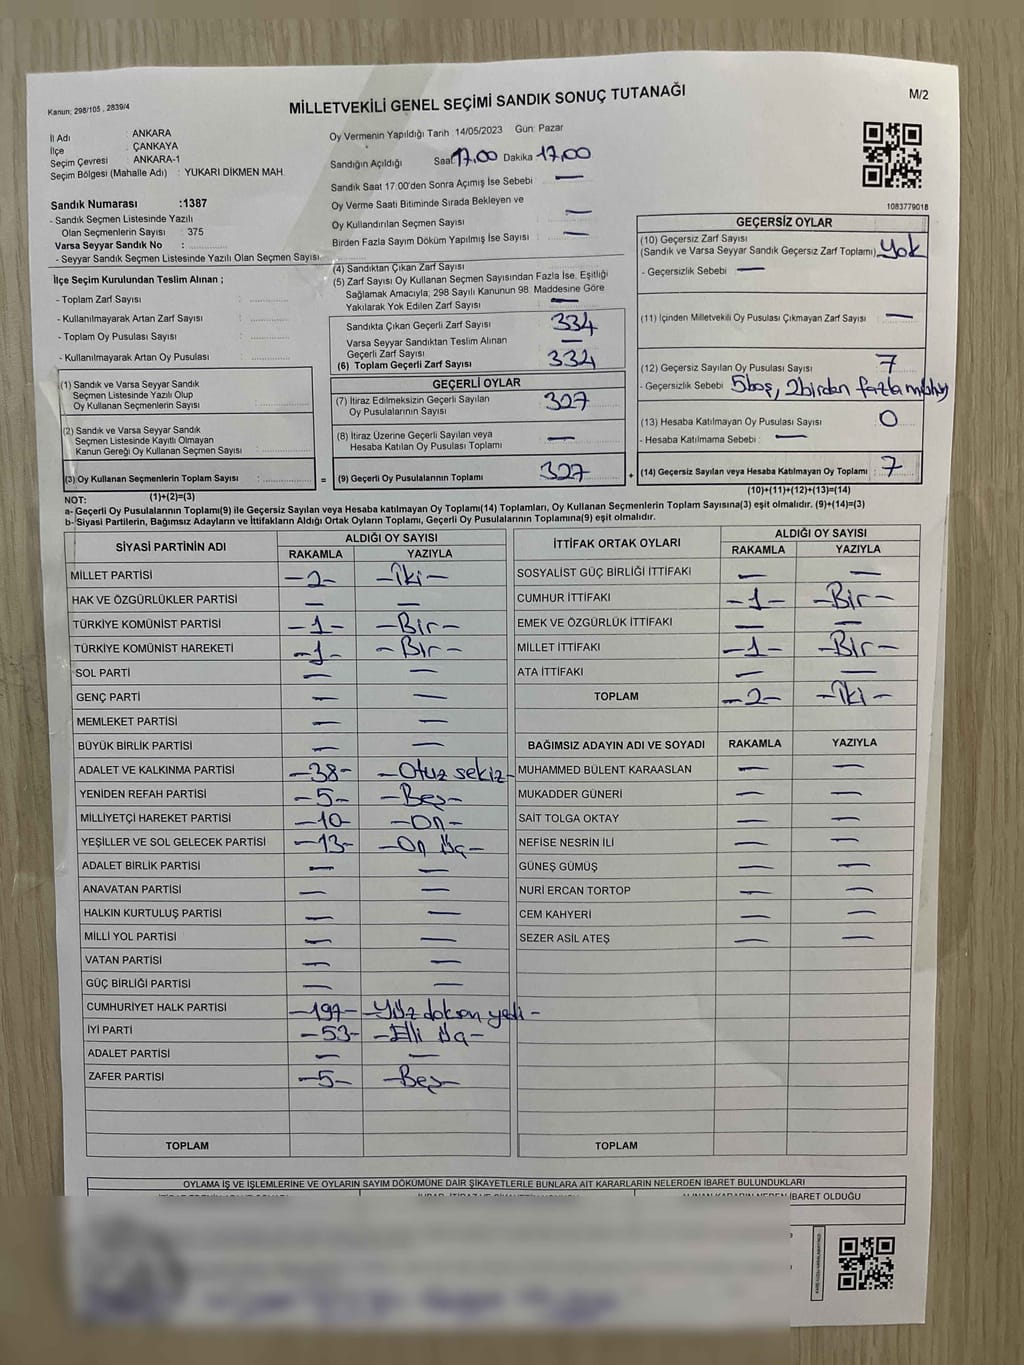 Kanun; 298/105 , 2839/4
MİLLETVEKİLİ GENEL SEÇİMİ SANDIK SONUÇ TUTANAĞI
M/2
İl Adı : ANKARA
İlçe : ÇANKAYA
Seçim Çevresi : ANKARA-1
Seçim Bölgesi (Mahalle Adı) : YUKARI DİKMEN MAH.
Oy Vermenin Yapıldığı Tarih 14/05/2023 Gün: Pazar
Sandığın Açıldığı Saat 17.00 Dakika 17.00
Sandık Saat 17:00'den Sonra Açımış İse Sebebi : —
Oy Verme Saati Bitiminde Sırada Bekleyen ve
Oy Kullandırılan Seçmen Sayısı : —
Birden Fazla Sayım Döküm Yapılmış İse Sayısı : —
1083779018
Sandık Numarası :1387
- Sandık Seçmen Listesinde Yazılı
Olan Seçmenlerin Sayısı : 375
Varsa Seyyar Sandık No :
- Seyyar Sandık Seçmen Listesinde Yazılı Olan Seçmen Sayısı
İlçe Seçim Kurulundan Teslim Alınan ;
- Toplam Zarf Sayısı :
- Kullanılmayarak Artan Zarf Sayısı :
- Toplam Oy Pusulası Sayısı :
- Kullanılmayarak Artan Oy Pusulası :
(1) Sandık ve Varsa Seyyar Sandık
Seçmen Listesinde Yazılı Olup
Oy Kullanan Seçmenlerin Sayısı :
(2) Sandık ve Varsa Seyyar Sandık
Seçmen Listesinde Kayıtlı Olmayan
Kanun Gereği Oy Kullanan Seçmen Sayısı :
(3) Oy Kullanan Seçmenlerin Toplam Sayısı :
(1)+(2)=(3)
(4) Sandıktan Çıkan Zarf Sayısı
(5) Zarf Sayısı Oy Kullanan Seçmen Sayısından Fazla İse, Eşitliği
Sağlamak Amacıyla; 298 Sayılı Kanunun 98. Maddesine Göre
Yakılarak Yok Edilen Zarf Sayısı : —
Sandıkta Çıkan Geçerli Zarf Sayısı 334
Varsa Seyyar Sandıktan Teslim Alınan
Geçerli Zarf Sayısı —
(6) Toplam Geçerli Zarf Sayısı 334
GEÇERLİ OYLAR
(7) İtiraz Edilmeksizin Geçerli Sayılan
Oy Pusulalarının Sayısı : 327
(8) İtiraz Üzerine Geçerli Sayılan veya
Hesaba Katılan Oy Pusulası Toplamı : —
= (9) Geçerli Oy Pusulalarının Toplamı : 327
GEÇERSİZ OYLAR
(10) Geçersiz Zarf Sayısı
(Sandık ve Varsa Seyyar Sandık Geçersiz Zarf Toplamı) Yok
- Geçersizlik Sebebi : —
(11) İçinden Milletvekili Oy Pusulası Çıkmayan Zarf Sayısı : —
(12) Geçersiz Sayılan Oy Pusulası Sayısı : 7
- Geçersizlik Sebebi : 5 boş, 2 birden fazla mühür
(13) Hesaba Katılmayan Oy Pusulası Sayısı : 0
- Hesaba Katılmama Sebebi : —
+ (14) Geçersiz Sayılan veya Hesaba Katılmayan Oy Toplamı : 7
(10)+(11)+(12)+(13)=(14)
NOT:
a- Geçerli Oy Pusulalarının Toplamı(9) ile Geçersiz Sayılan veya Hesaba katılmayan Oy Toplamı(14) Toplamları, Oy Kullanan Seçmenlerin Toplam Sayısına(3) eşit olmalıdır. (9)+(14)=(3)
b- Siyasi Partilerin, Bağımsız Adayların ve İttifakların Aldığı Ortak Oyların Toplamı, Geçerli Oy Pusulalarının Toplamına(9) eşit olmalıdır.
SİYASİ PARTİNİN ADI ALDIĞI OY SAYISI
RAKAMLA YAZIYLA
MİLLET PARTİSİ -2- -İki-
HAK VE ÖZGÜRLÜKLER PARTİSİ — —
TÜRKİYE KOMÜNİST PARTİSİ -1- -Bir-
TÜRKİYE KOMÜNİST HAREKETİ -1- -Bir-
SOL PARTİ — —
GENÇ PARTİ — —
MEMLEKET PARTİSİ — —
BÜYÜK BİRLİK PARTİSİ — —
ADALET VE KALKINMA PARTİSİ -38- -Otuz sekiz-
YENİDEN REFAH PARTİSİ -5- -Beş-
MİLLİYETÇİ HAREKET PARTİSİ -10- -On-
YEŞİLLER VE SOL GELECEK PARTİSİ -13- -On üç-
ADALET BİRLİK PARTİSİ — —
ANAVATAN PARTİSİ — —
HALKIN KURTULUŞ PARTİSİ — —
MİLLİ YOL PARTİSİ — —
VATAN PARTİSİ — —
GÜÇ BİRLİĞİ PARTİSİ — —
CUMHURİYET HALK PARTİSİ -197- -Yüz doksan yedi-
İYİ PARTİ -53- -Elli üç-
ADALET PARTİSİ — —
ZAFER PARTİSİ -5- -Beş-
TOPLAM
İTTİFAK ORTAK OYLARI ALDIĞI OY SAYISI
RAKAMLA YAZIYLA
SOSYALİST GÜÇ BİRLİĞİ İTTİFAKI — —
CUMHUR İTTİFAKI -1- -Bir-
EMEK VE ÖZGÜRLÜK İTTİFAKI — —
MİLLET İTTİFAKI -1- -Bir-
ATA İTTİFAKI — —
TOPLAM -2- -İki-
BAĞIMSIZ ADAYIN ADI VE SOYADI RAKAMLA YAZIYLA
MUHAMMED BÜLENT KARAASLAN — —
MUKADDER GÜNERİ — —
SAİT TOLGA OKTAY — —
NEFİSE NESRİN İLİ — —
GÜNEŞ GÜMÜŞ — —
NURİ ERCAN TORTOP — —
CEM KAHYERİ — —
SEZER ASİL ATEŞ — —
TOPLAM
OYLAMA İŞ VE İŞLEMLERİNE VE OYLARIN SAYIM DÖKÜMÜNE DAİR ŞİKAYETLERLE BUNLARA AİT KARARLARIN NELERDEN İBARET BULUNDUKLARI
İBARET OLDUĞU